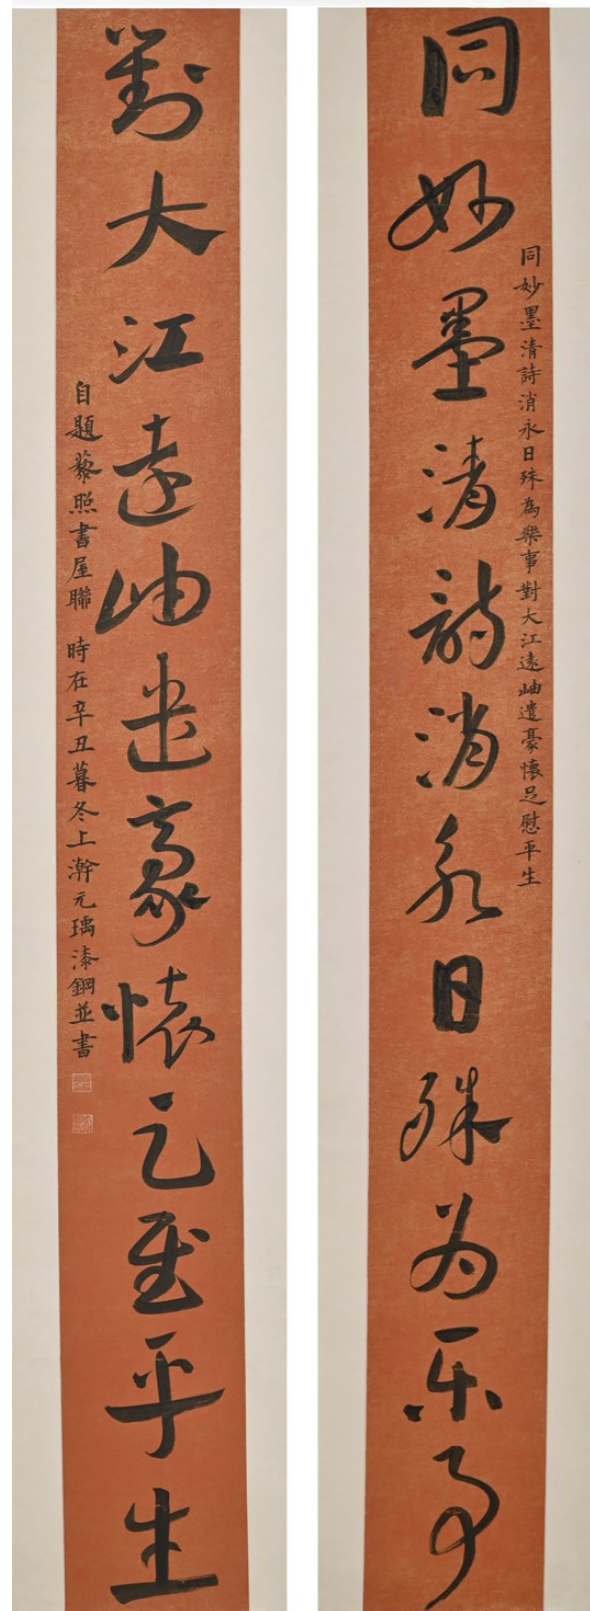 同妙墨清詩消永日殊为乐事
同妙墨清詩消永日殊為樂事對大江遠岫遣豪懷足慰平生
對大江遠岫遣豪懷足慰平生
自題藜照書屋聯 時在辛丑暮冬上澣元瑀漆鋼並書